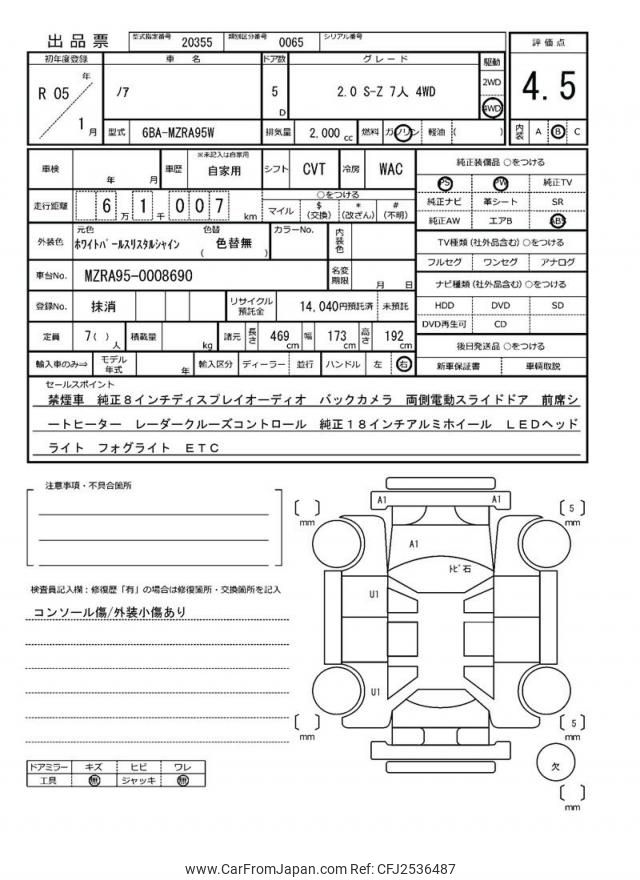 出品票 型式指定番号 20355 類別区分番号 0065 シリアル番号
評価点
4.5
内装 A B C
初年度登録 車名 ドア数 グレード 駆動
R 05 年 1 月
ノア
5 D
2.0 S-Z 7人 4WD
2WD
4WD
型式 6BA-MZRA95W 排気量 2,000 cc 燃料 ガソリン 軽油 ( )
車検 年 月 車歴 ※未記入は自家用 自家用 シフト CVT 冷房 WAC
走行距離 6 万 1 千 0 0 7 km
○をつける
マイル $ (交換) * (改ざん) # (不明)
外装色 元色 ホワイトパールスリスタルシャイン 色替 ( 色替無 ) カラーNo. 内装色
車台No. MZRA95-0008690 名変期限 月 日
登録No. 抹消 リサイクル預託金 14,040円預託済 未預託
定員 7( )人 積載量 kg 諸元 長さ 469 cm 幅 173 cm 高さ 192 cm
輸入車のみ⇒ モデル年式 年 輸入区分 ディーラー 並行 ハンドル 左 右
純正装備品 ○をつける
PS PW 純正TV
純正ナビ 革シート SR
純正AW エアB ABS
TV種類 (社外品含む) ○をつける
フルセグ ワンセグ アナログ
ナビ種類 (社外品含む) ○をつける
HDD DVD SD
DVD再生可 CD
後日発送品 ○をつける
新車保証書 車輌取説
セールスポイント
禁煙車 純正8インチディスプレイオーディオ バックカメラ 両側電動スライドドア 前席シ
ートヒーター レーダークルーズコントロール 純正18インチアルミホイール LEDヘッド
ライト フォグライト ETC
注意事項・不具合箇所
検査員記入欄:修復歴「有」の場合は修復箇所・交換箇所を記入
コンソール傷/外装小傷あり
ドアミラー キズ ヒビ ワレ
工具 無 ジャッキ 無
A1 A1
[ ] mm
[ 5 ] mm
A1
トビ石
U1
U1
[ ] mm
[ 5 ] mm
欠
[ ] mm
www.CarFromJapan.com Ref: CFJ2536487